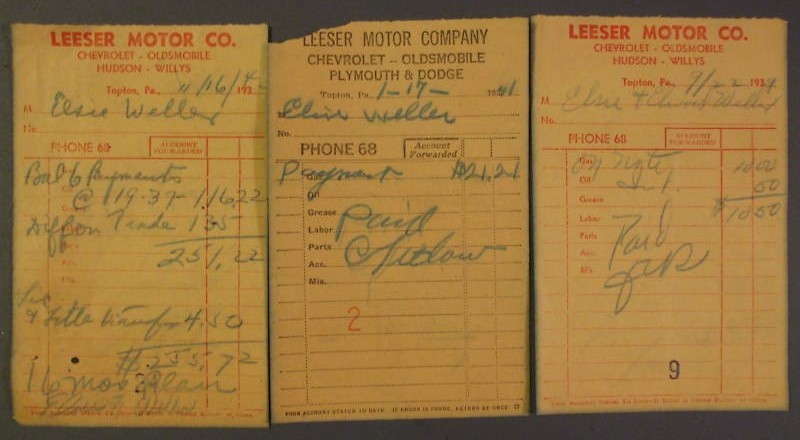 LEESER MOTOR CO.
CHEVROLET - OLDSMOBILE
HUDSON - WILLYS
Topton, Pa., 11/16/4 193
M Elsie Weller
No.
PHONE 68
ACCOUNT FORWARDED
Bal 6 Payments
@ 19.37 - 116.22
Diff on Trade 135
251.22
& Title transfer 4.50
$255.72
16 mos Plan
LEESER MOTOR COMPANY
CHEVROLET -- OLDSMOBILE
PLYMOUTH & DODGE
Topton, Pa., 1-17- 1941
M Weller
No.
PHONE 68
Account Forwarded
Payment $21.21
Oil
Grease
Labor
Parts
Acc.
Mis.
Paid
2
YOUR ACCOUNT STATED TO DATE. IF ERROR IS FOUND, RETURN AT ONCE
LEESER MOTOR CO.
CHEVROLET - OLDSMOBILE
HUDSON - WILLYS
Topton, Pa., 9/22 1939
M Elsie & Weller
No.
PHONE 68
ACCOUNT FORWARDED
Gas On Note 10 00
Oil Int. 50
Grease $10 50
Labor
Parts
Acc.
Mis.
Paid
9